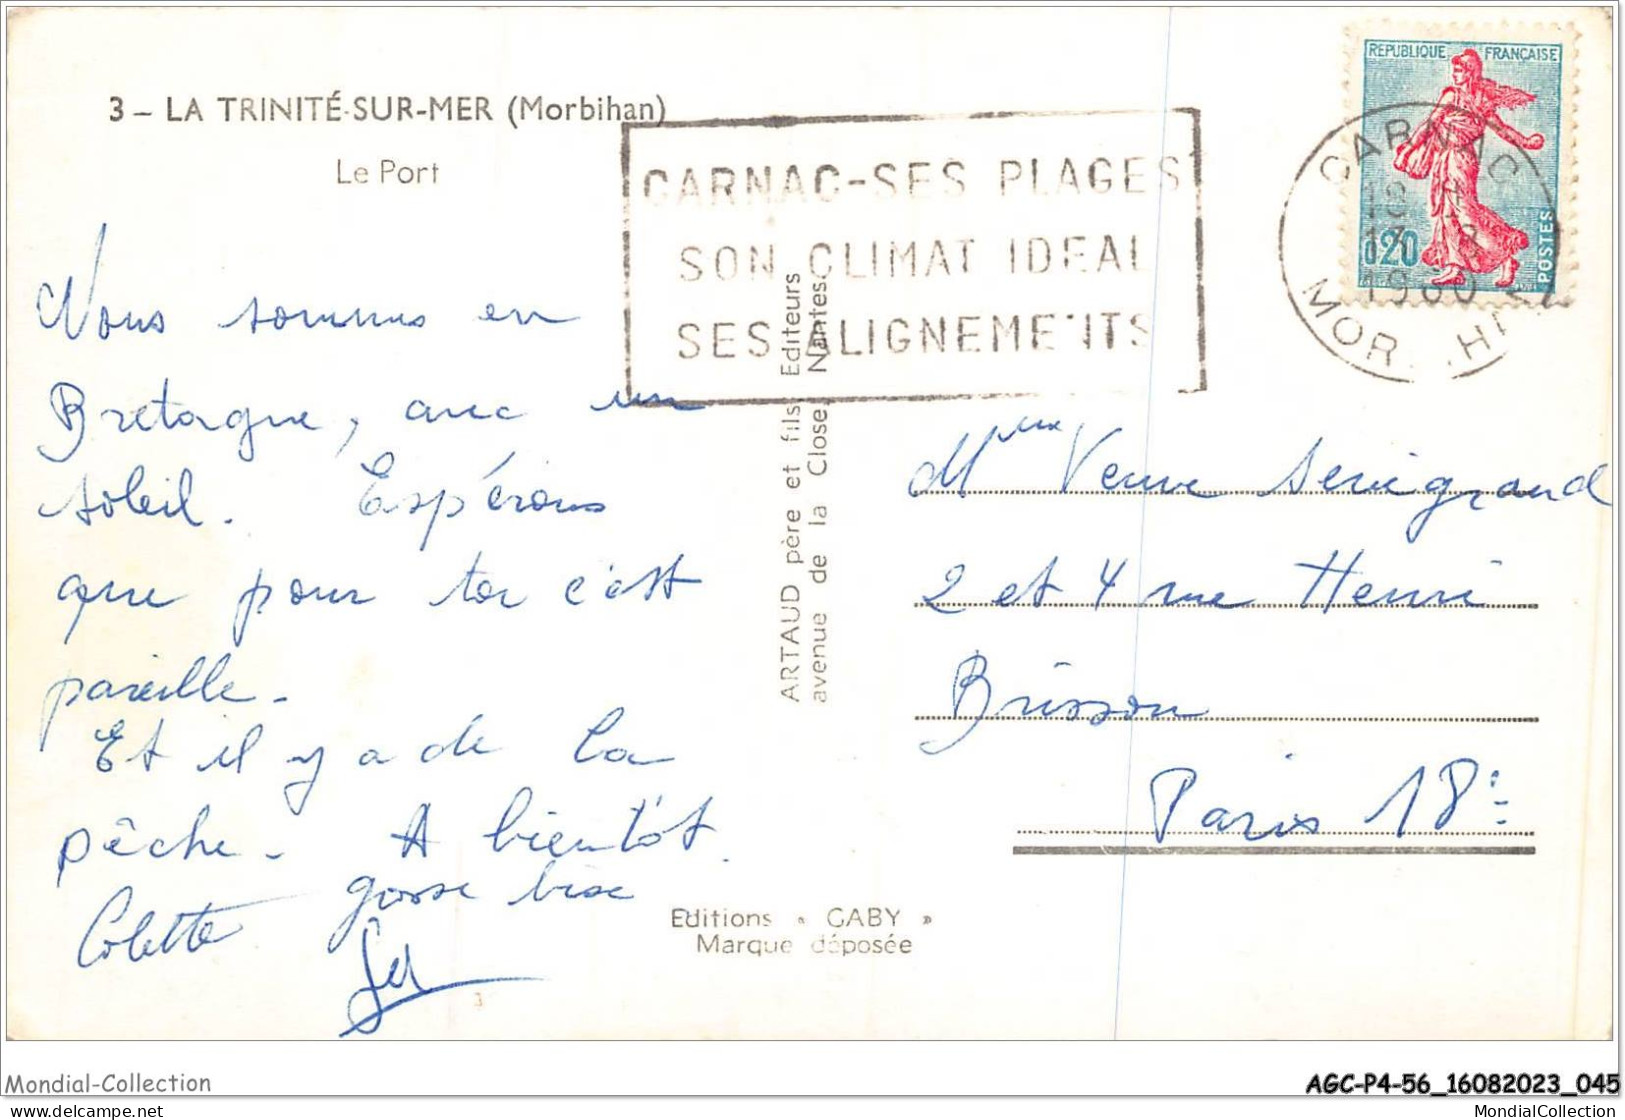 3 – LA TRINITÉ-SUR-MER (Morbihan)
Le Port
Nous sommes en
Bretagne, avec un
soleil. Espérons
que pour toi c'est
pareille.
Et il y a de la
pêche. A bientôt.
gosse bise
Colette
ARTAUD père et fils Editeurs
avenue de la Close, Nantes
CARNAC-SES PLAGES
SON CLIMAT IDEAL
SES ALIGNEMENTS
REPUBLIQUE FRANÇAISE
0,20
POSTES
CARNAC
1960
MOR HI
Mme Veuve Sevegrand
2 et 4 rue Henri
Brisson
Paris 18e
Editions « GABY »
Marque déposée
3
Mondial-Collection
AGC-P4-56_16082023_045
www.delcampe.net
MondialCollection